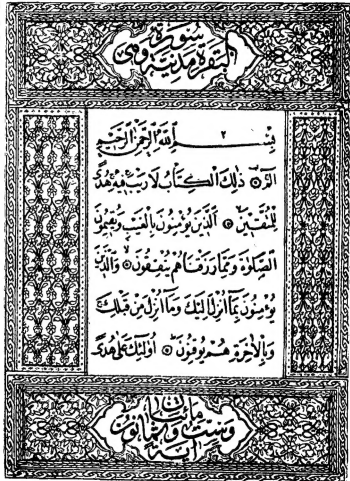 سورة
البقرة مدنية وهي
٢
بسم الله الرحمن الرحيم
الم ذلك الكتاب لا ريب فيه هدى
للمتقين الذين يؤمنون بالغيب ويقيمون
الصلوة ومما رزقناهم ينفقون والذين
يؤمنون بما أنزل إليك وما أنزل من قبلك
وبالآخرة هم يوقنون أولئك على هدى
مائتان
وست وثمانون
آية